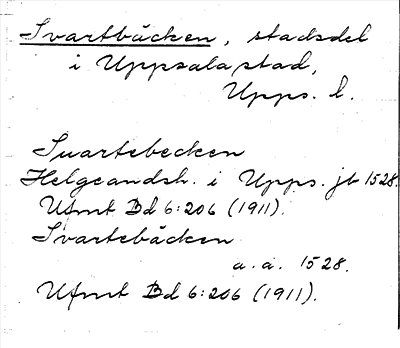 Svartbäcken, stadsdel
i Uppsala stad,
Upps. l.
Suartebecken
Helgeandsh. i Upps. jb 1528.
Ufmt Bd 6:206 (1911).
Svartebäcken
a.a. 1528.
Ufmt Bd 6:206 (1911).